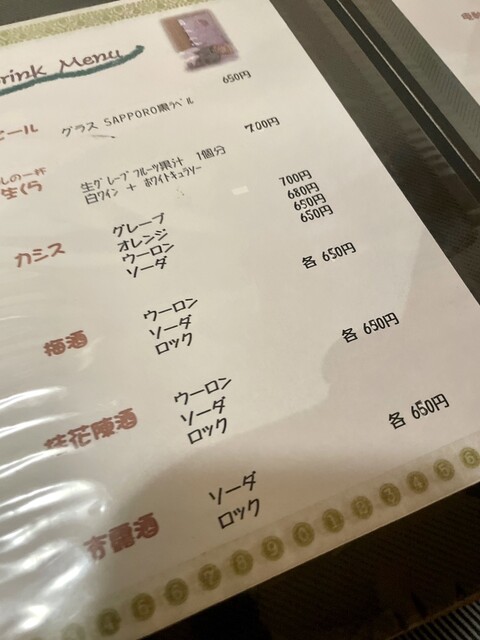 Drink Menu
ビール グラス SAPPORO黒ラベル 650円
しの一杯
生くら
生グレープフルーツ果汁 1個分 700円
白ワイン + ホワイトキュラソー
カシス
グレープ 700円
オレンジ 680円
ウーロン 650円
ソーダ 650円
梅酒
ウーロン 各 650円
ソーダ
ロック
桂花陳酒
ウーロン 各 650円
ソーダ
ロック
杏露酒
ソーダ 各 650円
ロック
4 5 6 7 8 9 0 1 2 3 4 5 6